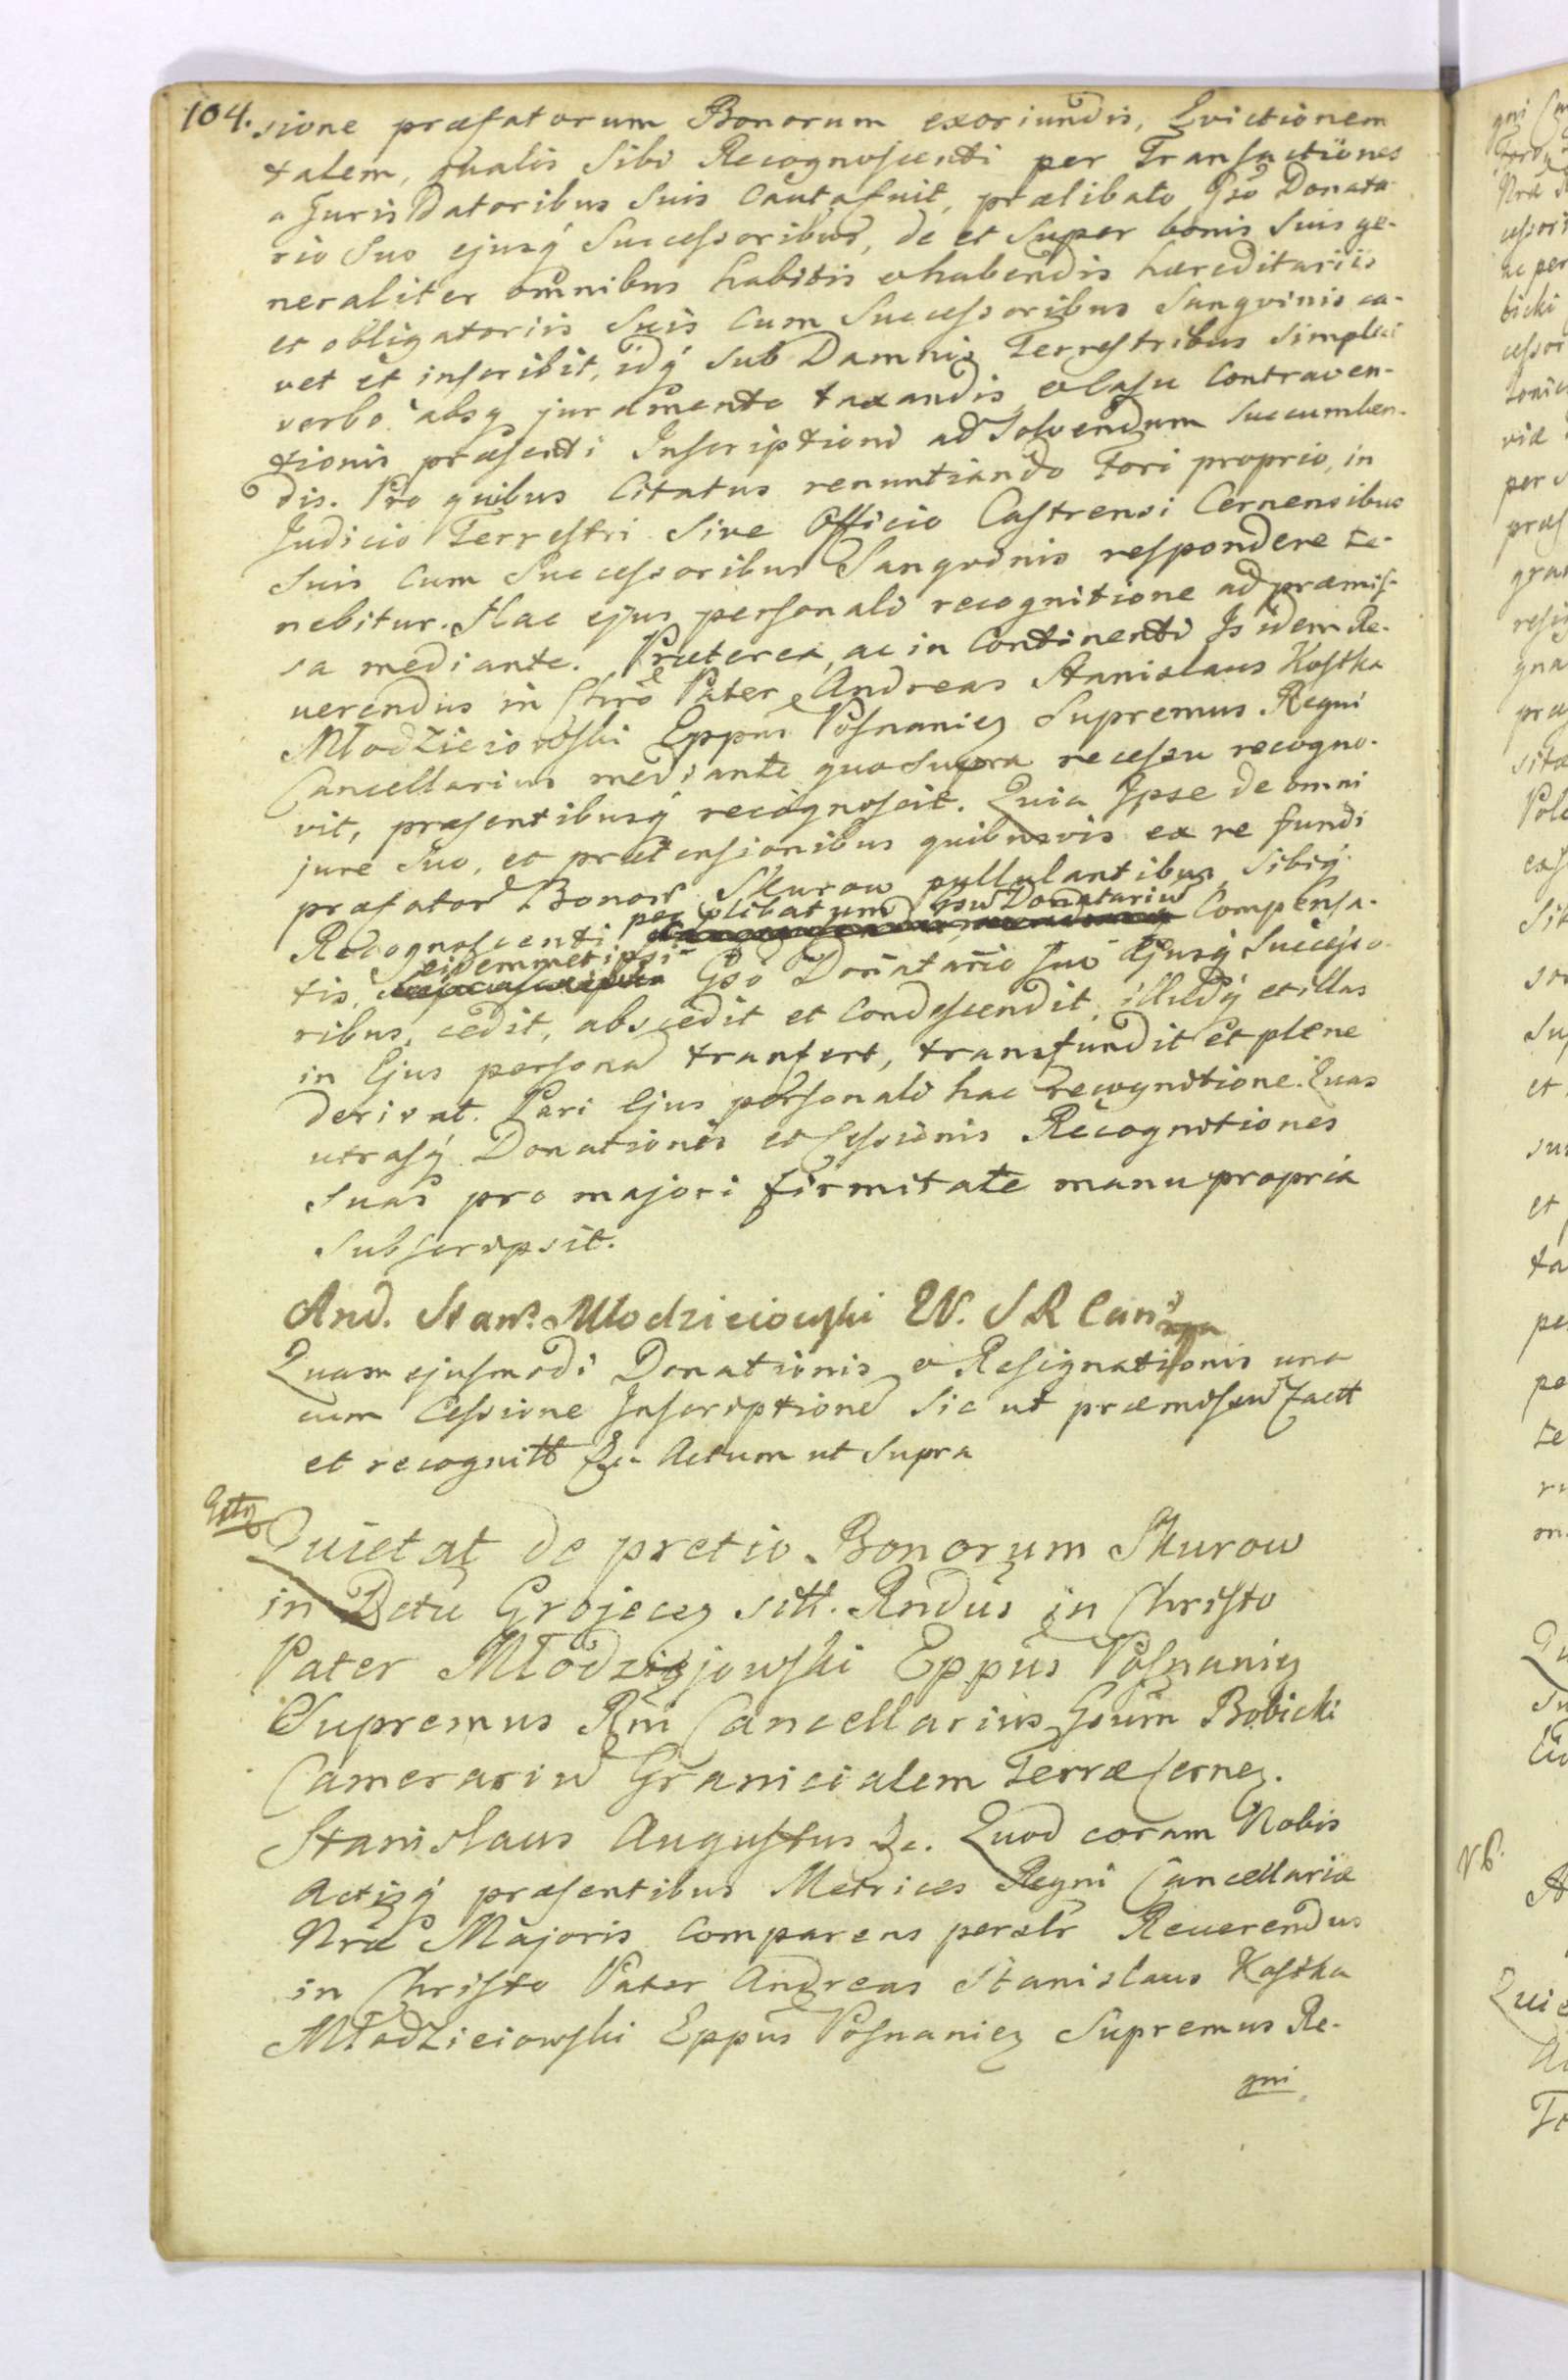 104. sione præfatorum Bonorum exoriundis, Evictionem
talem, qualis Sibi Recognoscenti per Transactiones
a Juris Datoribus Suis Cauta fuit, prælibato Gso Donata-
rio Suo ejusq́ Successoribus, de et Super bonis Suis ge-
neraliter omnibus habitis & habendis hæreditariis
et obligatoriis Suis Cum Successoribus Sangvinis ca-
vet et inscribit, idq́ Sub Damnis Terrestribus Simplici
verbo absq́ juramento taxandis & Casu Contraven-
tionis præsenti Inscriptioni ad Solvendum Succumben-
dis. Pro quibus Citatus renuntiando Fori proprio, in
Judicio Terrestri Sive Officio Castrensi Cernensibus
Suis Cum Successoribus Sangvinis respondere te-
nebitur. Hac ejus personali recognitione ad præmis-
sa mediante. Præterea, ac in Continenti Is idem Re-
verendus in Chrō Pater Andreas Stanislaus Kostka
Młodzieiowski Eppus Posnaniēz Supremus Regni
Cancellarius mediante quo Supra recessu recogno-
vit, præsentibusq́ recognoscit. Quia Ipse de omni
jure Suo, et prætensionibus quibusvis ex re fundi
præfator Bonor Skurow pullulantibus, Sibiq́
Recognoscenti per plibatum Gsū Donatariū Compensa-
tis, eidemmet ipsi Gsō Donatario Suo Ejusq́ Successo-
ribus, cedit, abscedit et Condescendit, illudq́ et illas
in Ejus persona tranfert, transfundit et plene
derivat. Pari Ejus personali hac recognitione. Quas
utrasq́ Donationis et Cessionis Recognitiones
Suas pro majori firmitate manu propria
Subscripsit.
And. Stans. Młodzieiowski EP. S R Can
Quam ejusmodi Donationis & Resignationis una
cum Cessione Inscriptione Sic ut præmissū factt
et recognitt &c. Actum ut Supra
Quietat de pretio Bonorum Skurow
in Dctū Grojecez sitt. Rndūs in Christo
Pater Młodziejowski Eppūs Posnaniez
Supremus Rni Cancellarius Gsūm Bobicki
Camerariū Granicialem Terræ Cernez.
Stanislaus Augustus &c. Quod coram Nobis
Actisq́ præsentibus Metrices Regni Cancellariæ
Nræ Majoris Comparens persłr Reverendus
in Christo Pater Andreas Stanislaus Kostka
Młodzieiowski Eppūs Posnaniez Supremus Re-
gni